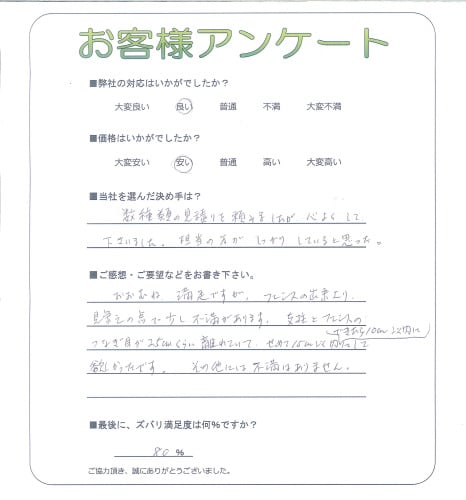 お客様アンケート
■弊社の対応はいかがでしたか？
大変良い 良い 普通 不満 大変不満
■価格はいかがでしたか？
大変安い 安い 普通 高い 大変高い
■当社を選んだ決め手は？
数種類の見積りを頼みましたが、心よくして
下さいました。担当の方がしっかりしていると思った。
■ご感想・ご要望などをお書き下さい。
おおむね、満足ですが、フェンスの出来上り、
見栄えの点で少し不満があります。支柱とフェンスの
(できたら10cm以内に)
つなぎ目が25cmくらい離れていて、せめて15cm以内にして
欲しかったです。その他には不満はありません。
■最後に、ズバリ満足度は何%ですか？
80 %
ご協力頂き、誠にありがとうございました。